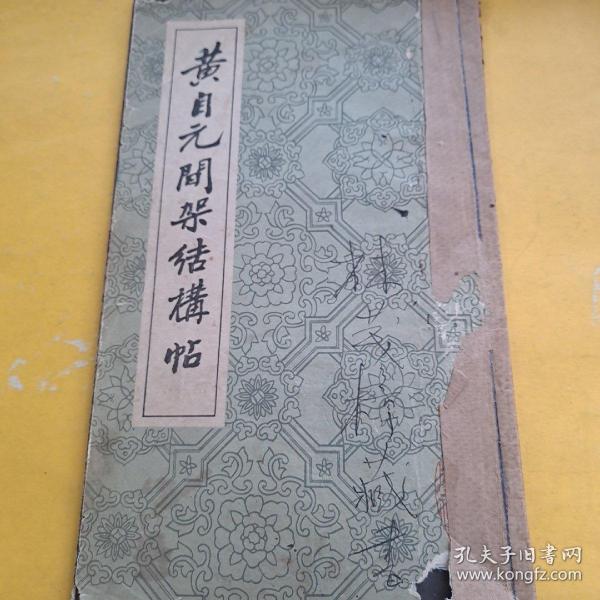 黄自元間架结構帖
藏书
孔夫子旧書网
www.kongfz.com